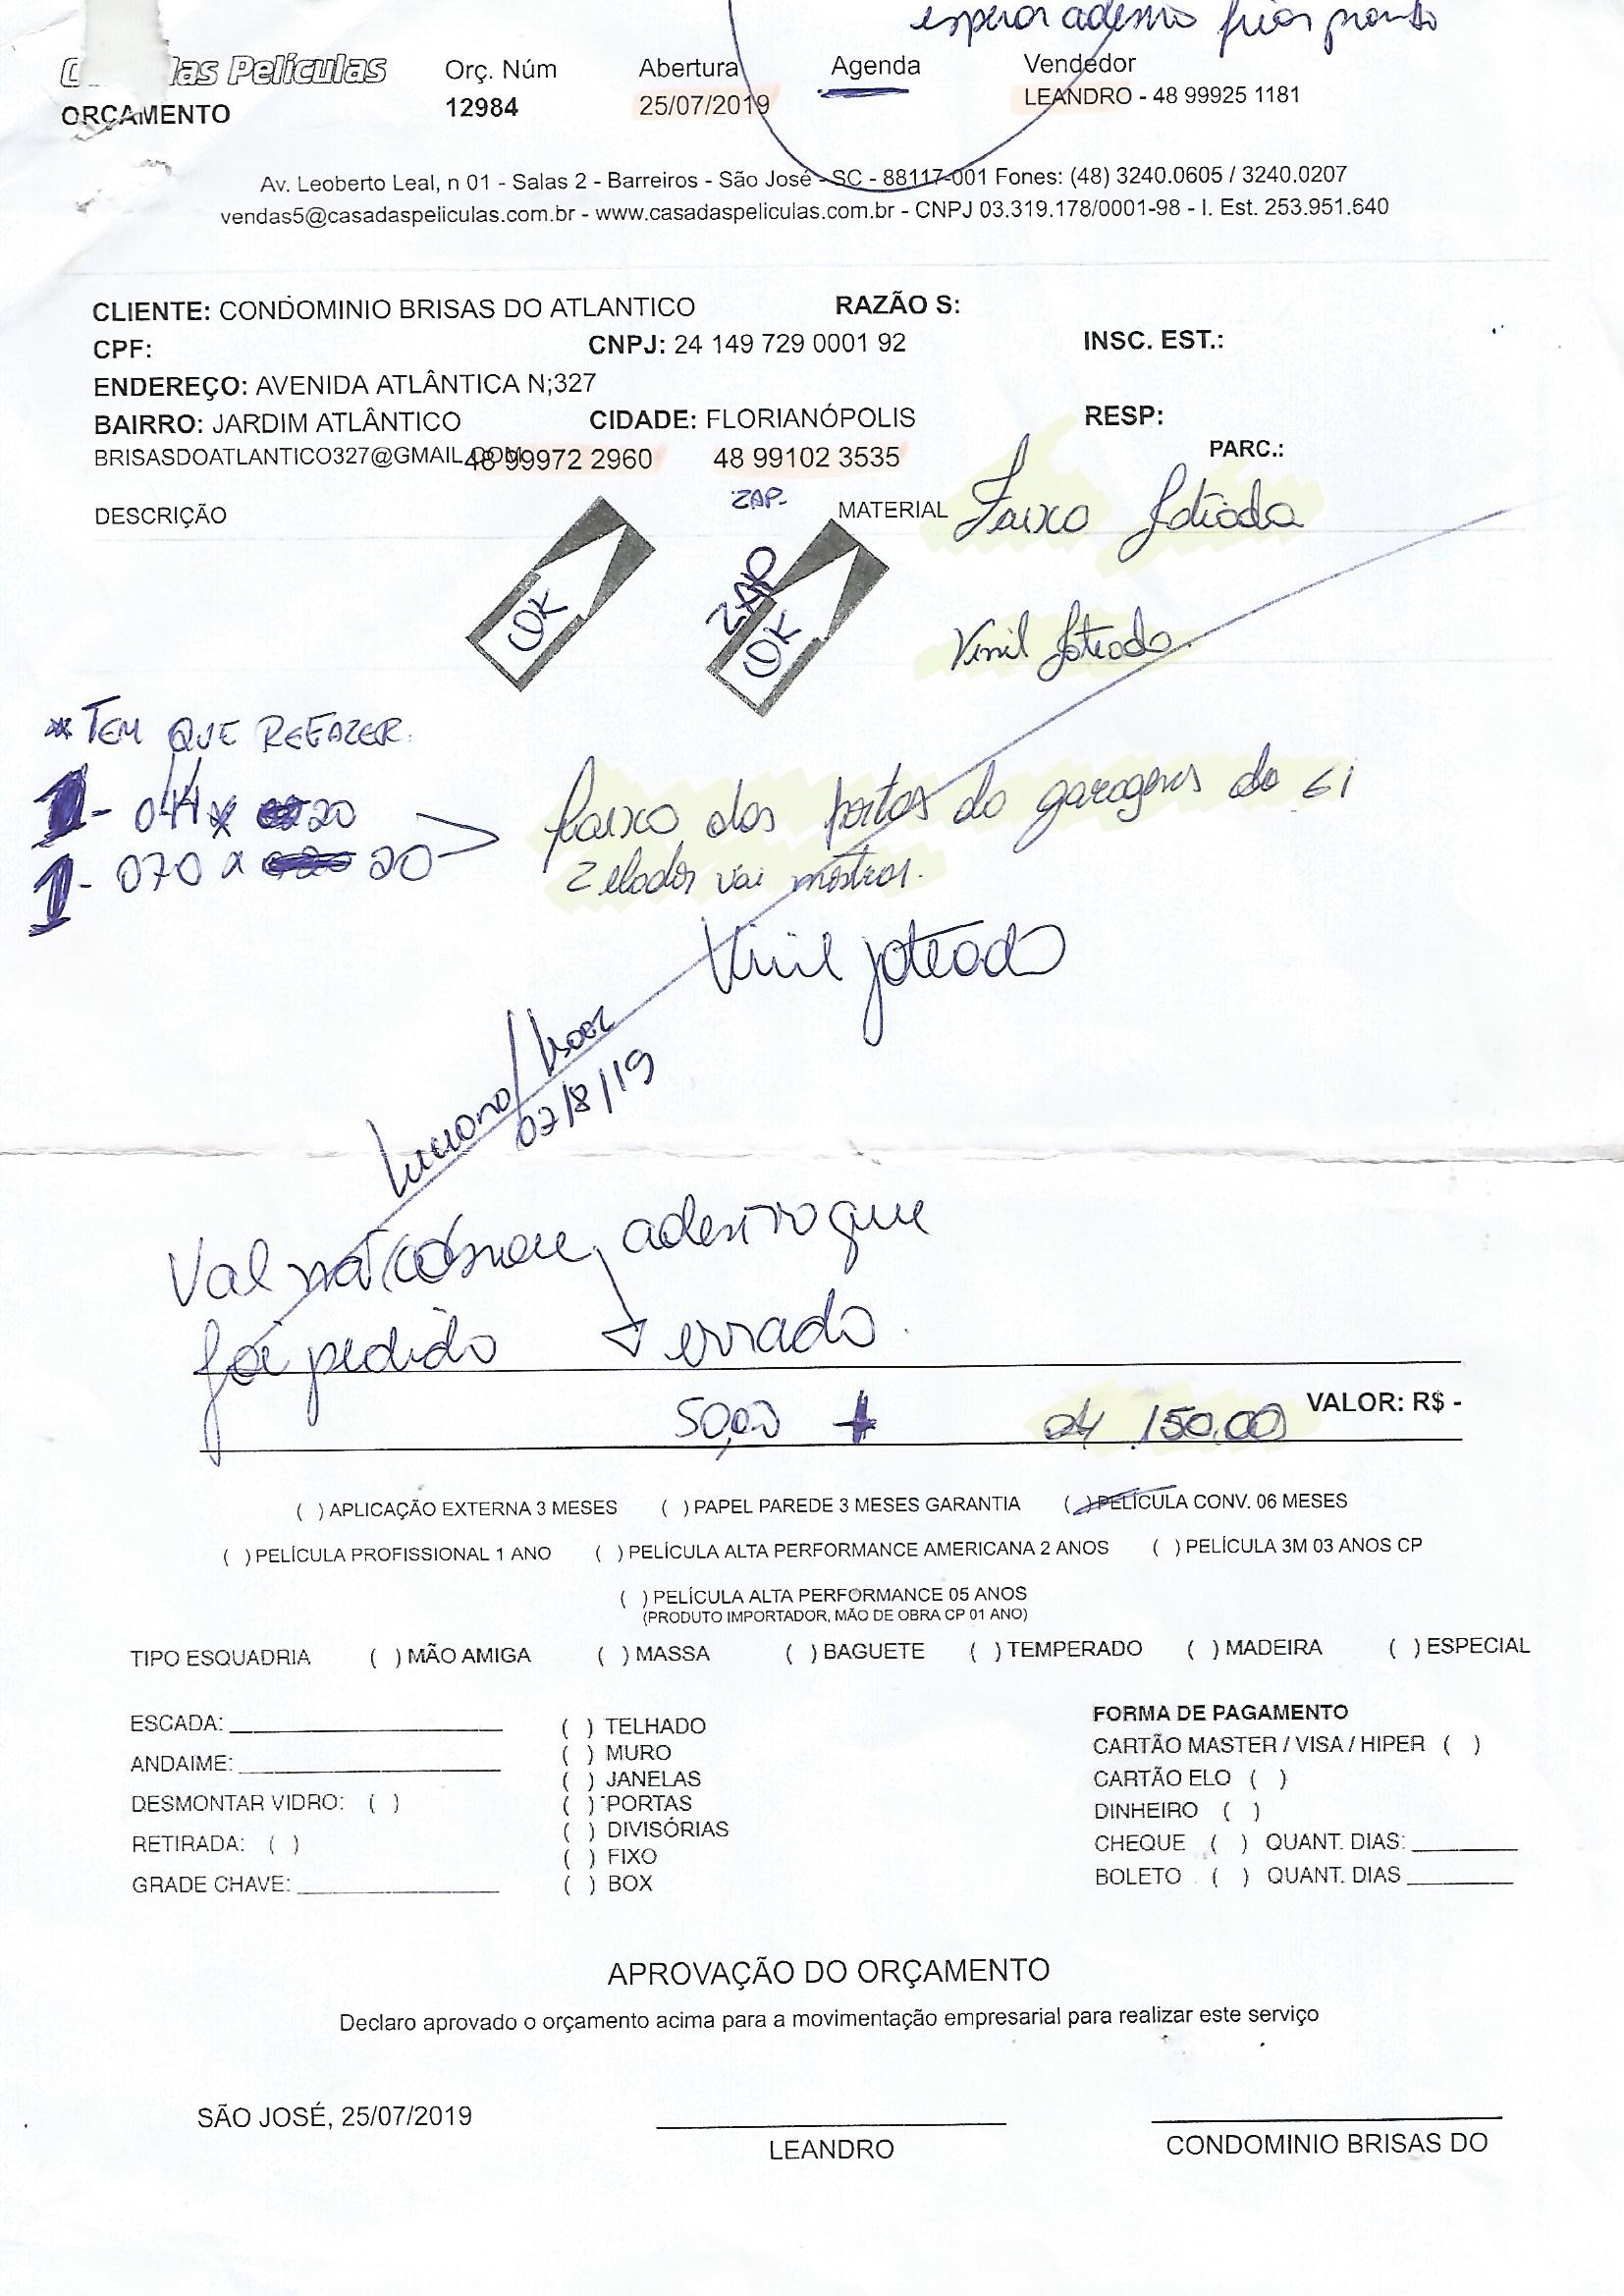 esperar adesivo ficar pronto
das Películas
ORÇAMENTO
Orç. Núm
12984
Abertura
25/07/2019
Agenda
Vendedor
LEANDRO - 48 99925 1181
Av. Leoberto Leal, n 01 - Salas 2 - Barreiros - São José - SC - 88117-001 Fones: (48) 3240.0605 / 3240.0207
vendas5@casadaspeliculas.com.br - www.casadaspeliculas.com.br - CNPJ 03.319.178/0001-98 - I. Est. 253.951.640
CLIENTE: CONDOMINIO BRISAS DO ATLANTICO RAZÃO S:
CPF: CNPJ: 24 149 729 0001 92 INSC. EST.:
ENDEREÇO: AVENIDA ATLÂNTICA N;327
BAIRRO: JARDIM ATLÂNTICO CIDADE: FLORIANÓPOLIS RESP:
BRISASDOATLANTICO327@GMAIL.COM 48 99972 2960 48 99102 3535 PARC.:
ZAP-
DESCRIÇÃO MATERIAL Faixa Jateada
OK ZAP OK
Vinil Jateado
* TEM QUE REFAZER.
1- 044 x 20
1- 070 x 20
faixa das portas da garagens do G1
Zelador vai mostrar.
Vinil jateado
Luciano/Isaac
02/8/19
Val não cobrou, adesivo que
foi pedido errado.
50,00 + 150,00 VALOR: R$ -
( ) APLICAÇÃO EXTERNA 3 MESES ( ) PAPEL PAREDE 3 MESES GARANTIA ( ) PELÍCULA CONV. 06 MESES
( ) PELÍCULA PROFISSIONAL 1 ANO ( ) PELÍCULA ALTA PERFORMANCE AMERICANA 2 ANOS ( ) PELÍCULA 3M 03 ANOS CP
( ) PELÍCULA ALTA PERFORMANCE 05 ANOS
(PRODUTO IMPORTADOR, MÃO DE OBRA CP 01 ANO)
TIPO ESQUADRIA ( ) MÃO AMIGA ( ) MASSA ( ) BAGUETE ( ) TEMPERADO ( ) MADEIRA ( ) ESPECIAL
ESCADA:
ANDAIME:
DESMONTAR VIDRO: ( )
RETIRADA: ( )
GRADE CHAVE:
( ) TELHADO
( ) MURO
( ) JANELAS
( ) PORTAS
( ) DIVISÓRIAS
( ) FIXO
( ) BOX
FORMA DE PAGAMENTO
CARTÃO MASTER / VISA / HIPER ( )
CARTÃO ELO ( )
DINHEIRO ( )
CHEQUE ( ) QUANT. DIAS:
BOLETO ( ) QUANT. DIAS
APROVAÇÃO DO ORÇAMENTO
Declaro aprovado o orçamento acima para a movimentação empresarial para realizar este serviço
SÃO JOSÉ, 25/07/2019
LEANDRO
CONDOMINIO BRISAS DO